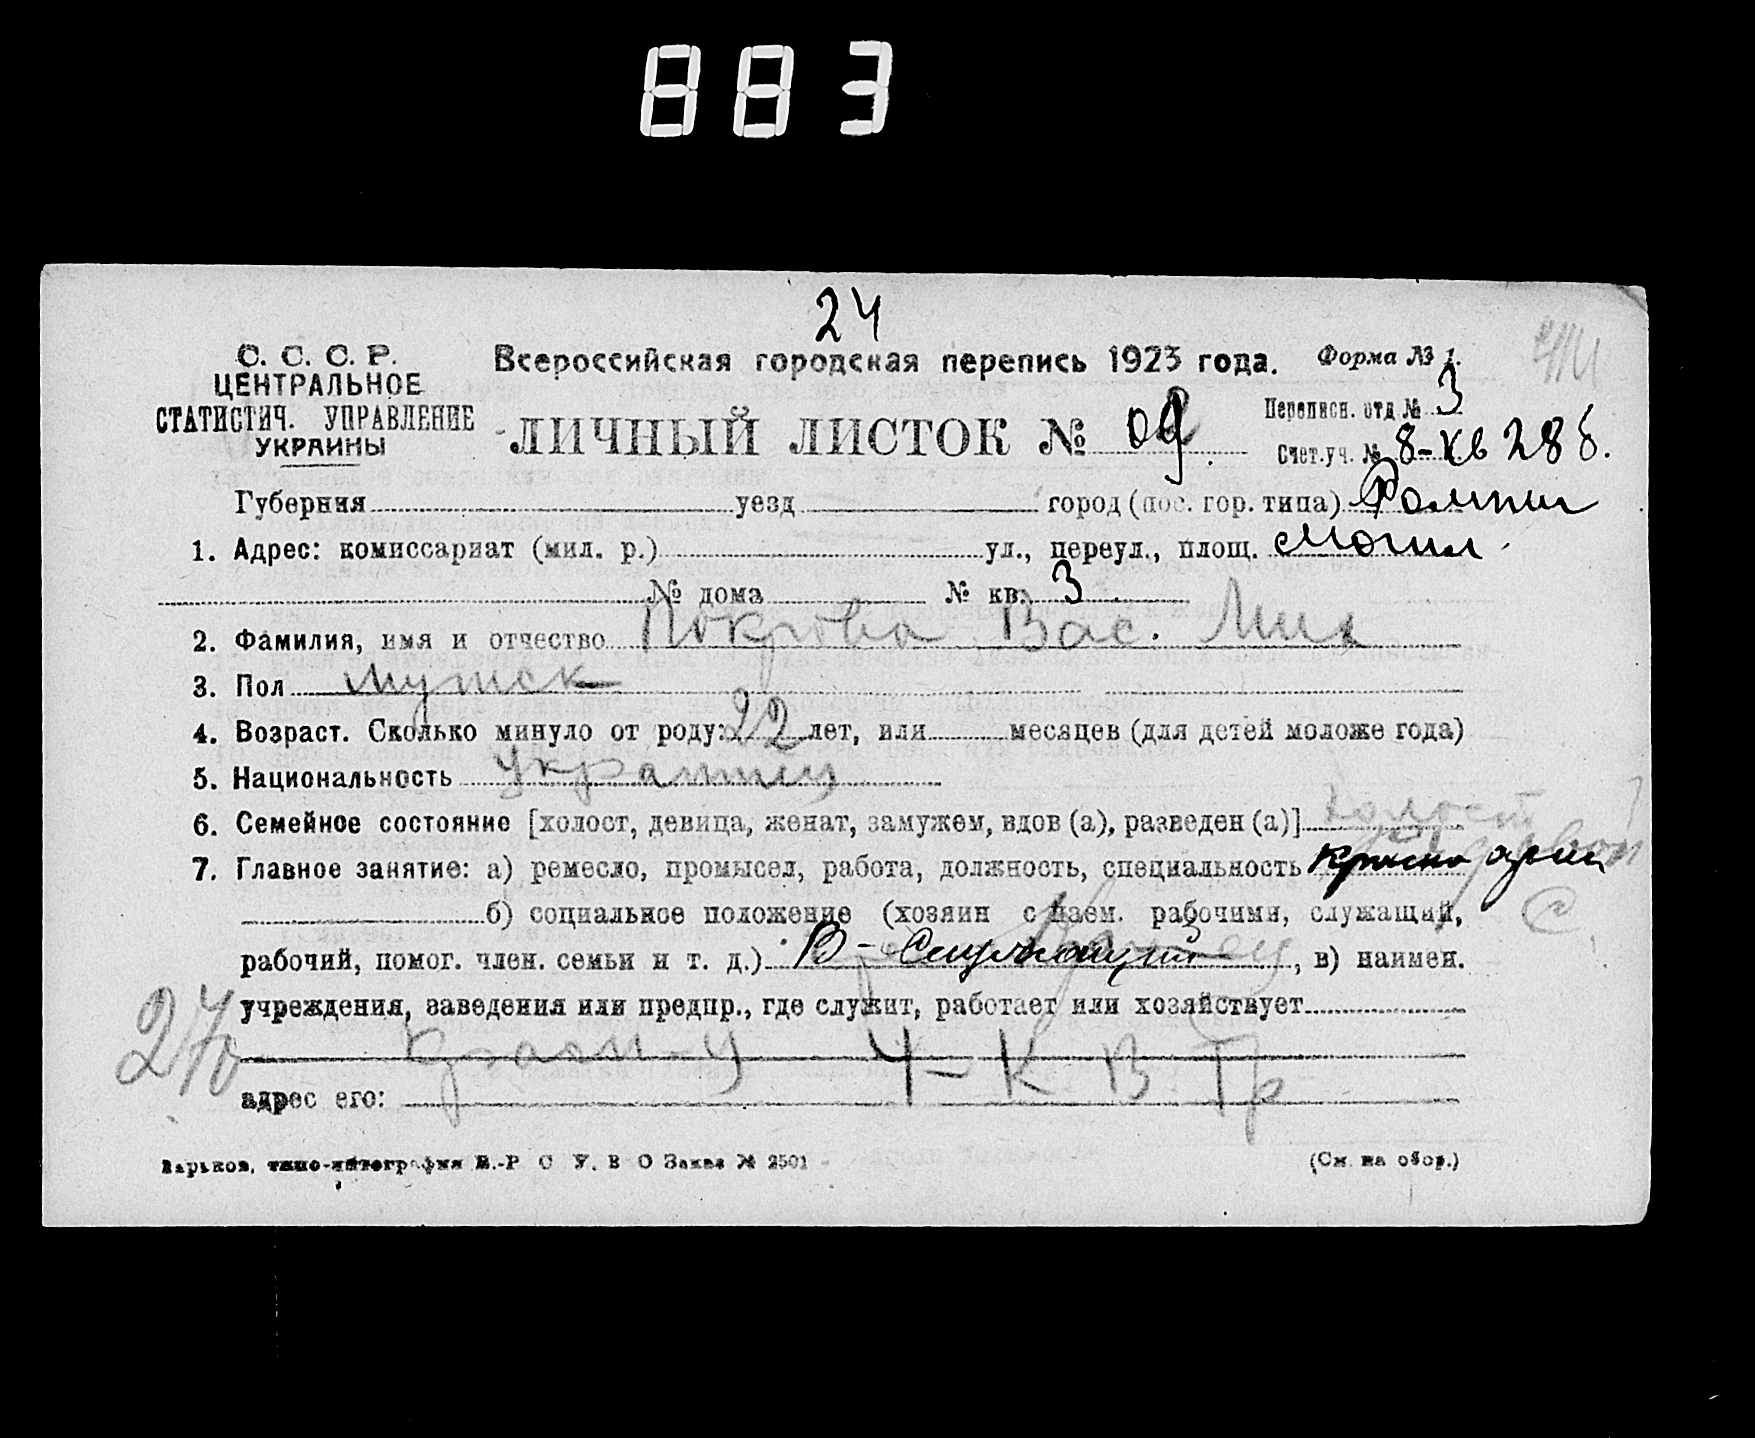 883
24
С. С. С. Р.
ЦЕНТРАЛЬНОЕ
СТАТИСТИЧ. УПРАВЛЕНИЕ
УКРАИНЫ
Всероссийская городская перепись 1923 года. Форма № 1.
ЛИЧНЫЙ ЛИСТОК №
Переписн. отд № 3
Счет.уч. № 8-кв 288.
Губерния уезд город (пос. гор. типа)
1. Адрес: комиссариат (мил. р.) ул., переул., площ. Могил
№ дома № кв. 3
2. Фамилия, имя и отчество Покрова Вас. Мих
3. Пол мужск
4. Возраст. Сколько минуло от роду: 22 лет, или месяцев (для детей моложе года)
5. Национальность Украинец
6. Семейное состояние [холост, девица, женат, замужем, вдов (а), разведен (а)] холост
7. Главное занятие: а) ремесло, промысел, работа, должность, специальность красно арм
б) социальное положение (хозяин с наем. рабочими, служащий,
рабочий, помог. член. семьи и т. д.) В - Служащий, в) наимен.
учреждения, заведения или предпр., где служит, работает или хозяйствует
4 - К В Тр
адрес его:
Харьков, типо-литография В.-Р С У. В О Заказ № 2501
(См. на обор.)